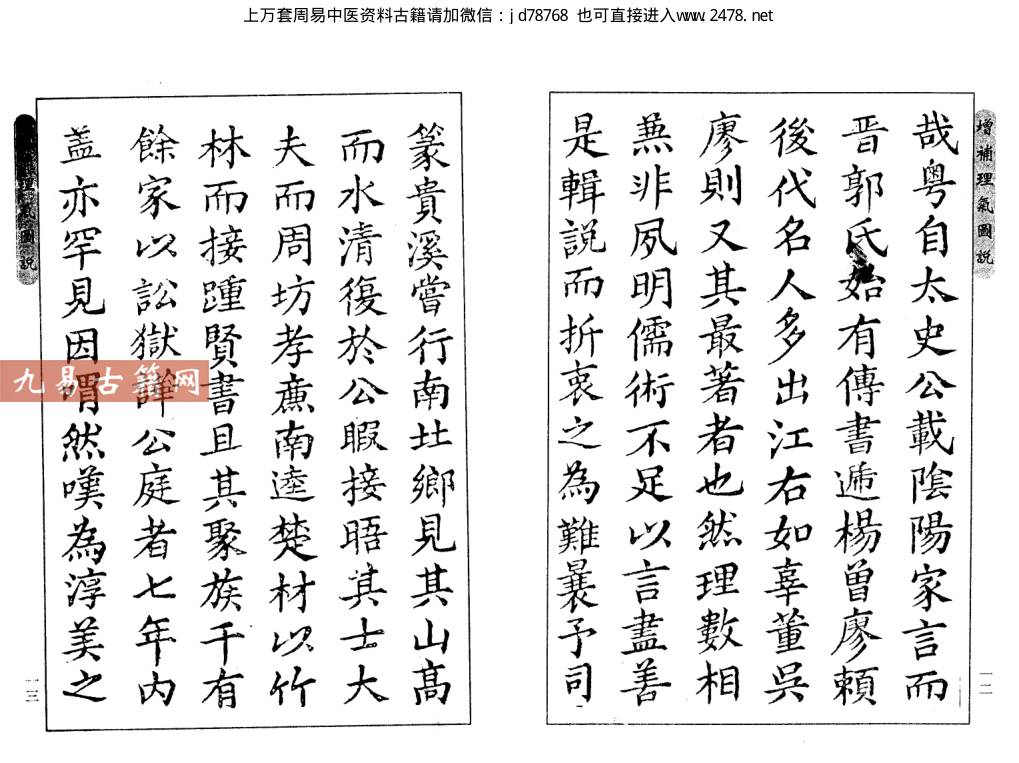 上万套周易中医资料古籍请加微信：jd78768 也可直接进入www.2478.net
增補理氣圖説
哉粤自太史公載陰陽家言而
晋郭氏始有傳書遞楊曽廖賴
後代名人多出江右如辜董吳
廖則又其最著者也然理數相
蕪非夙明儒術不足以言盡善
是輯説而折衷之為難曩予司
一二
篆貴溪嘗行南北鄉見其山高
而水清復於公暇接晤其士大
夫而周坊孝廉南逵楚材以竹
林而接踵賢書且其聚族千有
餘家以訟獄譁公庭者七年内
盖亦罕見因喟然嘆為淳美之
理氣圖説
一三
九易古籍网